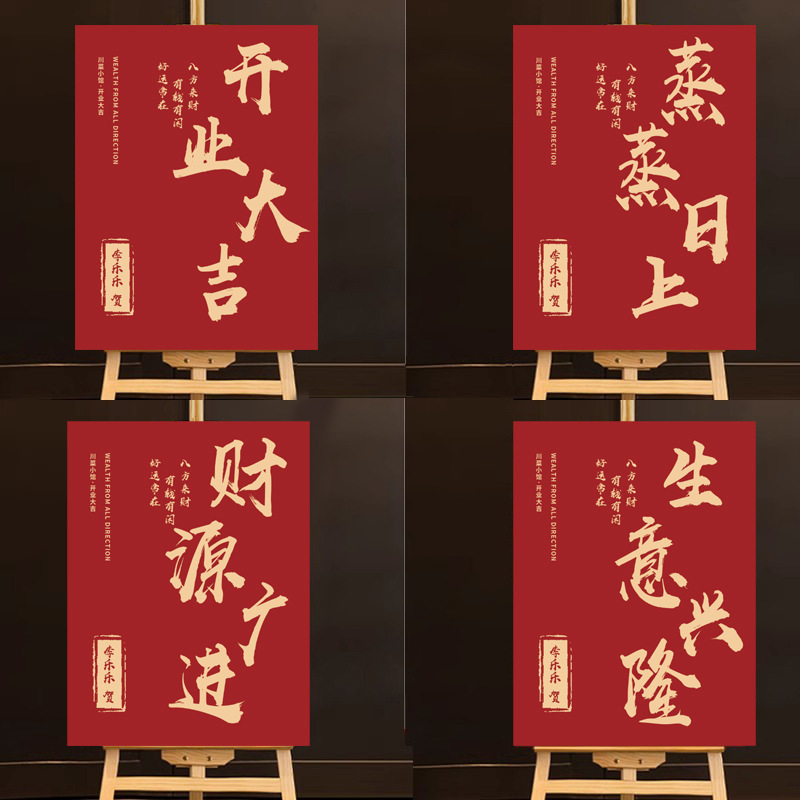 开业大吉
八方来财
有钱有闲
好运常在
WEALTH FROM ALL DIRECTION
川菜小馆·开业大吉
李乐乐 贺
蒸蒸日上
八方来财
有钱有闲
好运常在
WEALTH FROM ALL DIRECTION
川菜小馆·开业大吉
李乐乐 贺
财源广进
八方来财
有钱有闲
好运常在
WEALTH FROM ALL DIRECTION
川菜小馆·开业大吉
李乐乐 贺
生意兴隆
八方来财
有钱有闲
好运常在
WEALTH FROM ALL DIRECTION
川菜小馆·开业大吉
李乐乐 贺